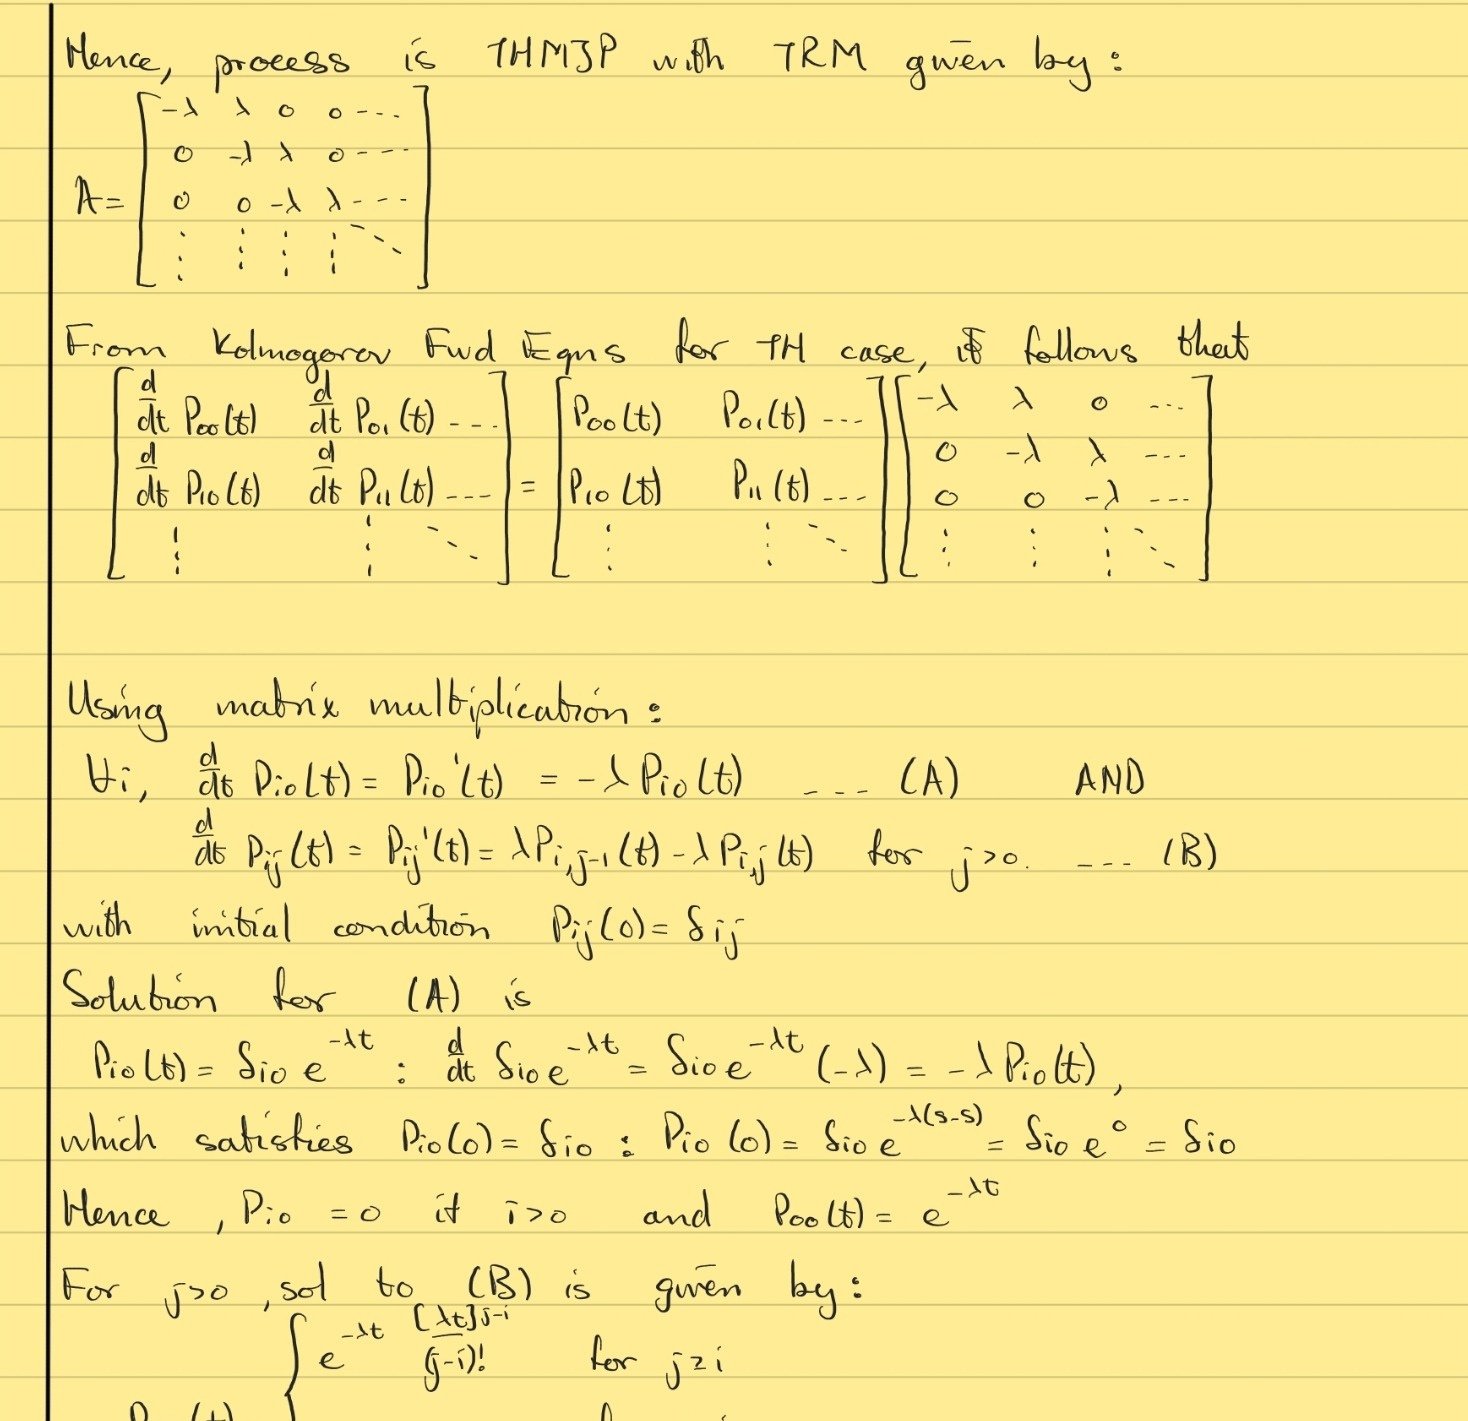 Hence, process is THMJP with TRM given by:
A = [ -λ λ 0 0 ---
0 -λ λ 0 ---
0 0 -λ λ ---
⋮ ⋮ ⋮ ⋮ ⋱ ]
From Kolmogorov Fwd Eqns for TH case, it follows that
[ d/dt P₀₀(t) d/dt P₀₁(t) --- ] = [ P₀₀(t) P₀₁(t) --- ] [ -λ λ 0 ---
d/dt P₁₀(t) d/dt P₁₁(t) --- P₁₀(t) P₁₁(t) --- 0 -λ λ ---
0 0 -λ ---
⋮ ⋮ ⋱ ⋮ ⋮ ⋱ ⋮ ⋮ ⋮ ⋱ ]
Using matrix multiplication:
∀i, d/dt Pi0(t) = Pi0'(t) = -λ Pi0(t) --- (A) AND
d/dt Pij(t) = Pij'(t) = λPi,j-1(t) - λPi,j(t) for j>0. --- (B)
with initial condition Pij(0) = δij
Solution for (A) is
Pi0(t) = δi0 e^(-λt) : d/dt δi0 e^(-λt) = δi0 e^(-λt) (-λ) = -λ Pi0(t),
which satisfies Pi0(0) = δi0 : Pi0(0) = δi0 e^(-λ(s-s)) = δi0 e^0 = δi0
Hence, Pi0 = 0 if i>0 and P₀₀(t) = e^(-λt)
For j>0, sol to (B) is given by:
{ e^(-λt) [λt]^(j-i) / (j-i)! for j≥i